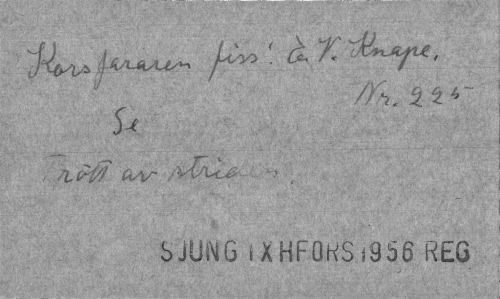 Korsfararen fiss! E. V. Knape.
Nr. 225
Se
Trött av striden.
SJUNG IX HFORS 1956 REG